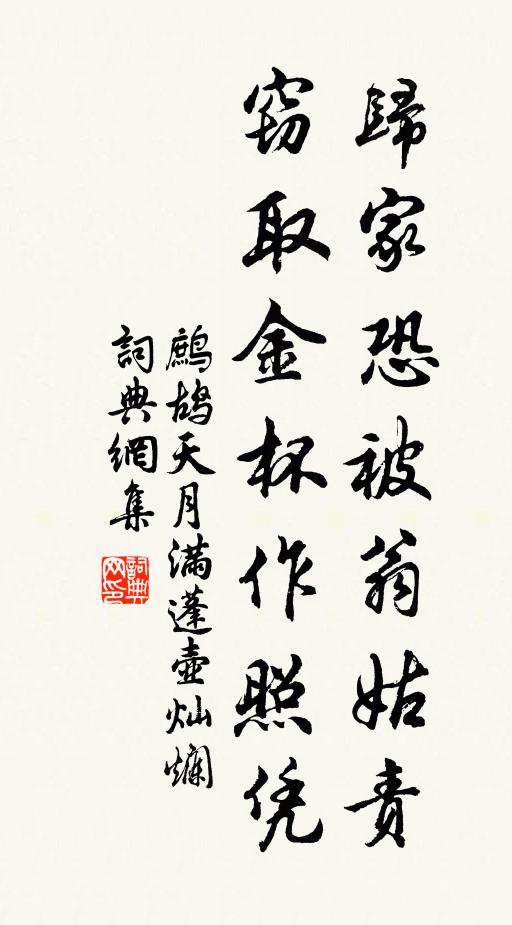 歸家恐被翁姑責
竊取金杯作照凭
鷓鴣天月滿蓬壺灿爛
詞典網集
詞典网印